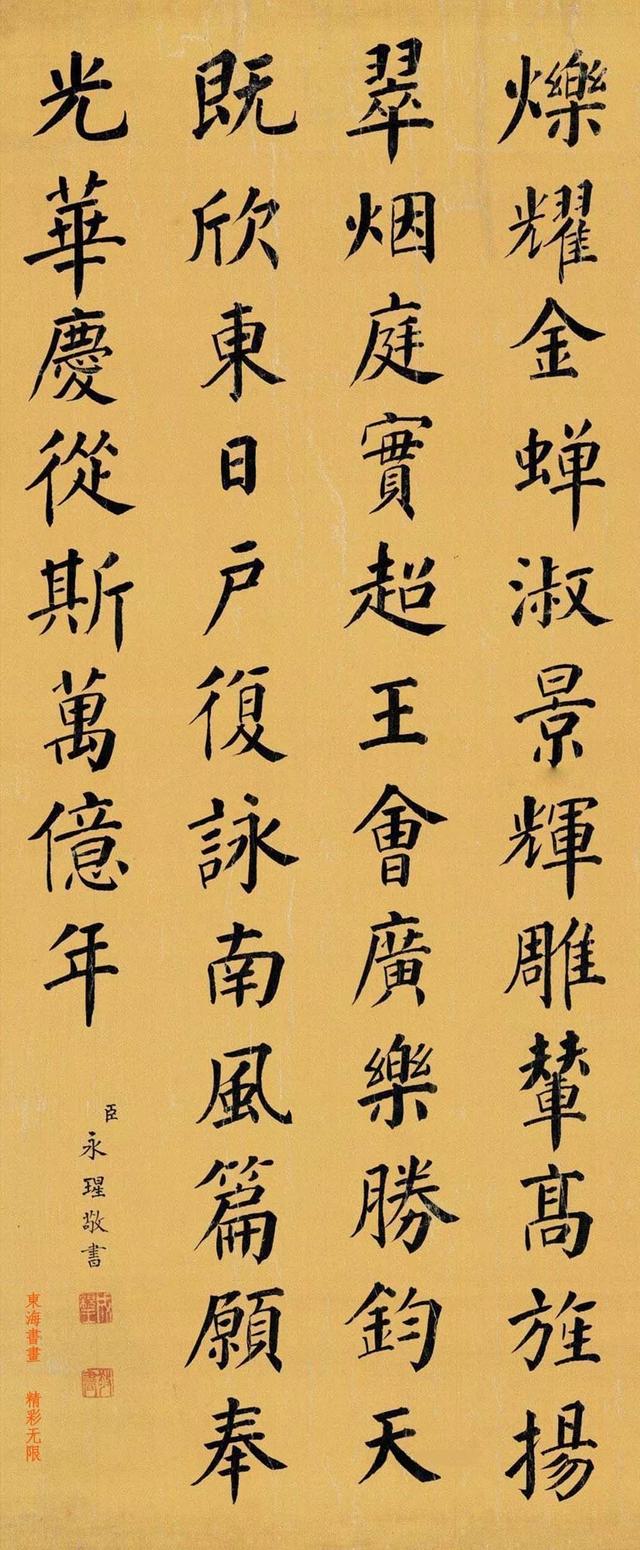 爍耀金蝉淑景輝雕輦髙旌揚
翠烟庭實超王會廣樂勝鈞天
既欣東日户復詠南風篇願奉
光華慶從斯萬億年
臣永瑆敬書
東海書畫 精彩无限